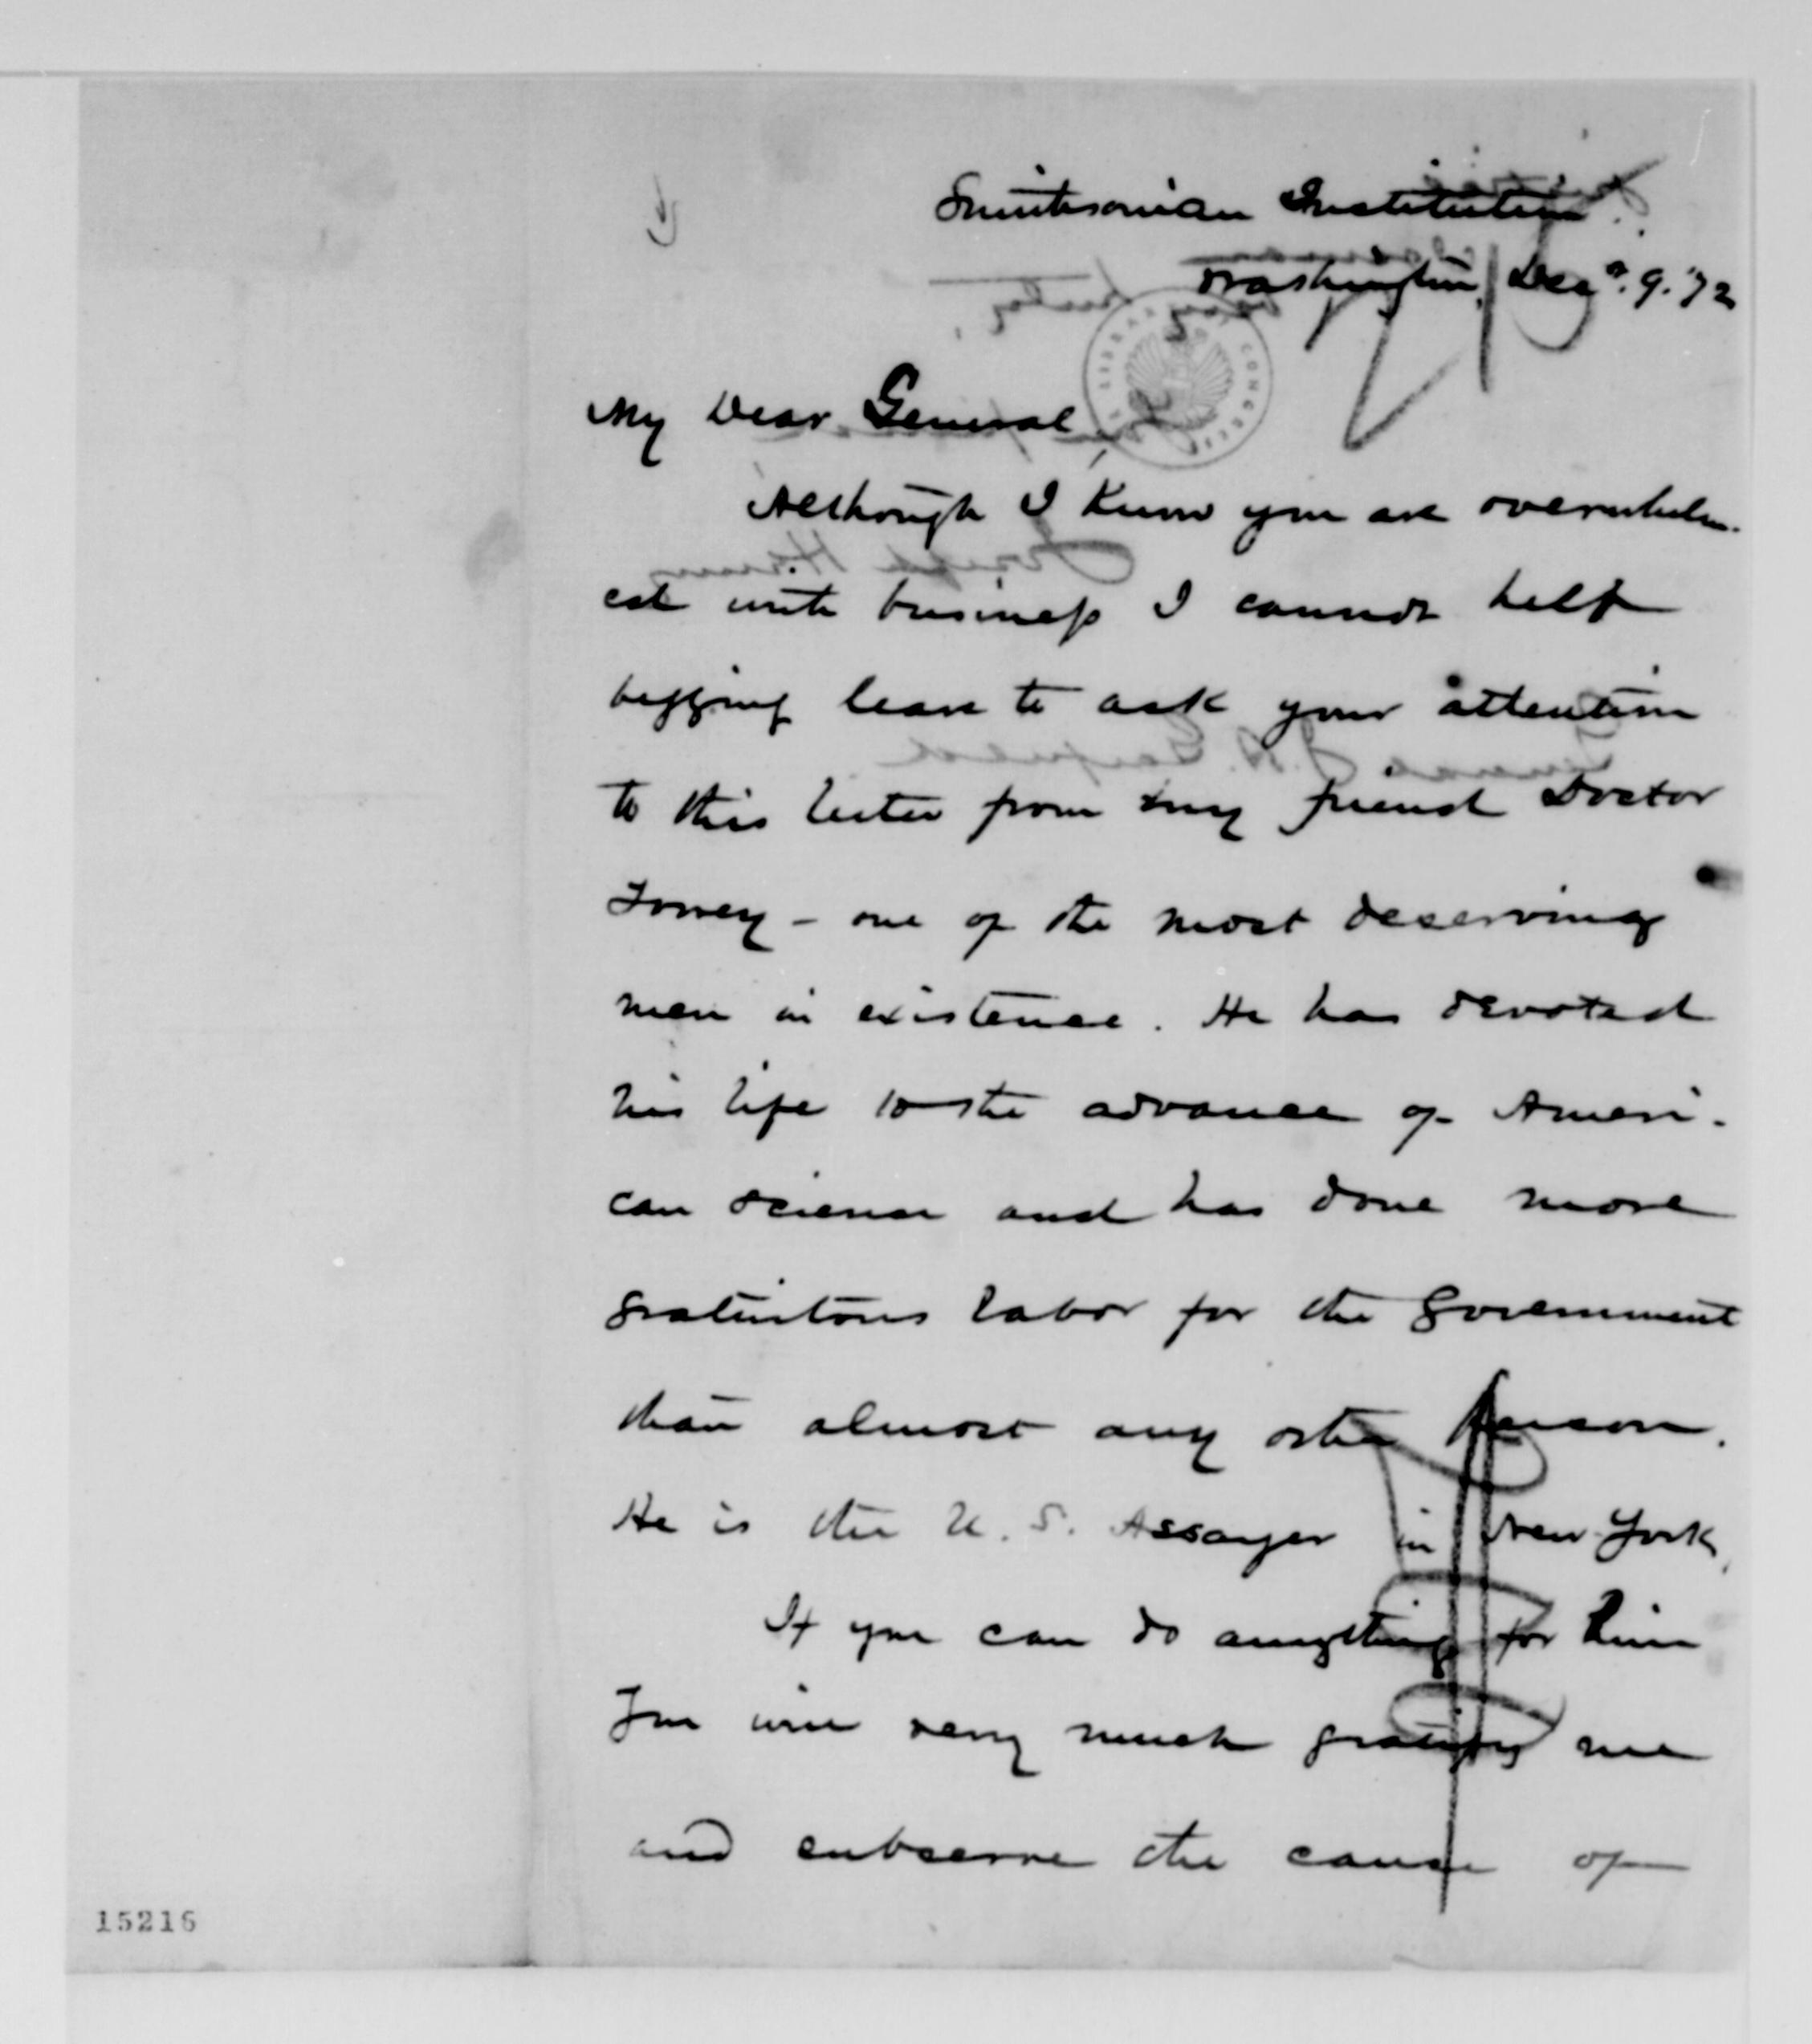 Smithsonian Institution.
Washington, Dec. 9. '72
LIBRARY OF CONGRESS
My Dear General,
Although I know you are overwhelm-
ed with business I cannot help
begging leave to ask your attention
to this letter from my friend Doctor
Torrey - one of the most deserving
men in existence. He has devoted
his life to the advance of Ameri-
can science and has done more
gratuitous labor for the government
than almost any other person.
He is the U. S. Assayer in New York,
If you can do anything for him
You will very much gratify me
and subserve the cause of
15216